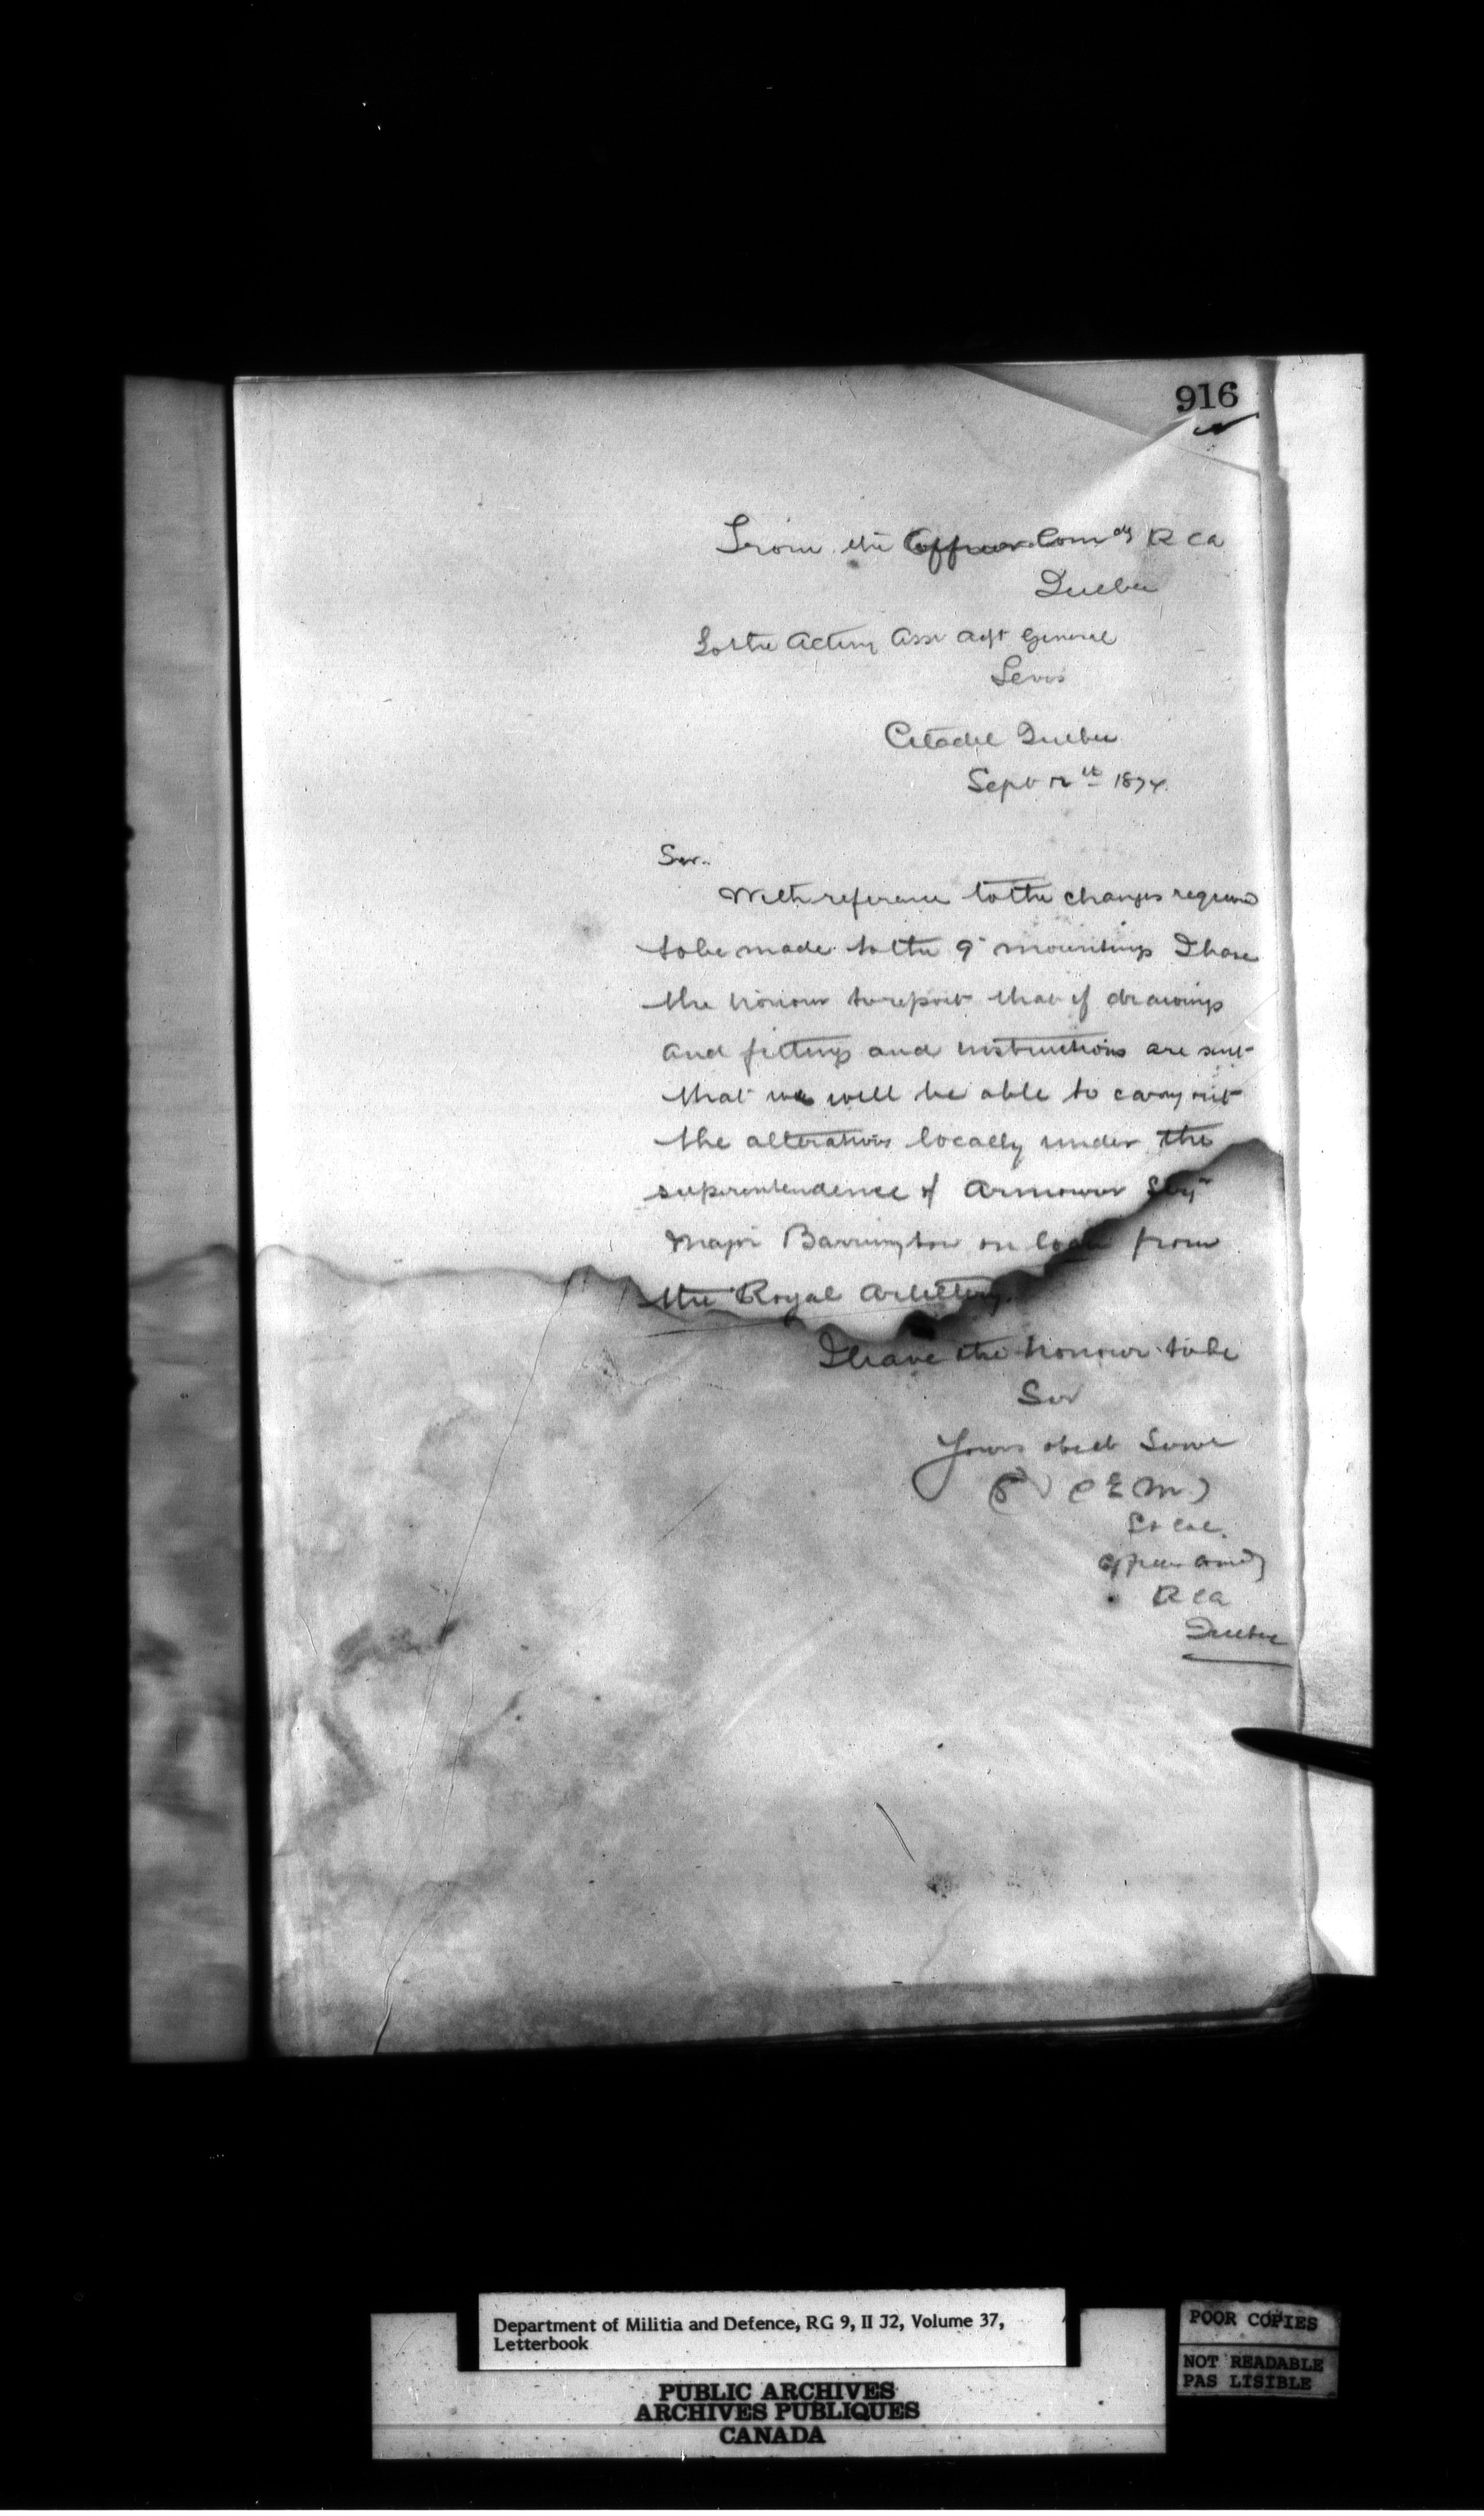 916
From the Officer Comdg R C A
Quebec
To the Acting Asst Adjt General
Levis
Citadel Quebec
Sept 12th 189
Sir.
With reference to the changes required
to be made to the 9" mountings I have
the honour to report that if drawings
and fittings and instructions are sent
that we will be able to carry out
the alterations locally under the
superintendence of Armourer
Major Barrington on loan from
the Royal Artillery.
I have the honour to be
Sir
Yours obedt Servt
(C E M)
Lt Col.
Officer Comdg
R C A
Quebec
Department of Militia and Defence, RG 9, II J2, Volume 37,
Letterbook
PUBLIC ARCHIVES
ARCHIVES PUBLIQUES
CANADA
POOR COPIES
NOT READABLE
PAS LISIBLE